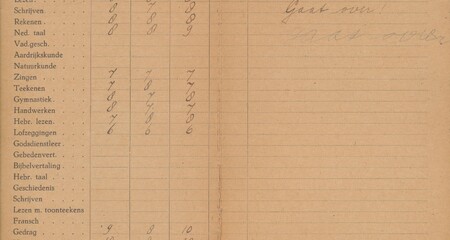 Schrijven . . . . 8 7 8 Gaat over!
Rekenen . . . . 8 8 8
Ned. taal . . . . 8 8 9 over
Vad.gesch. . . .
Aardrijkskunde .
Natuurkunde . .
Zingen . . . . . 7 7 7
Teekenen . . . . 7 8 7
Gymnastiek . . . 8 7 8
Handwerken . . 8 7 7
Hebr. lezen. . . . 7 8 8
Lofzeggingen . . 6 6 6
Godsdienstleer . .
Gebedenvert. . . .
Bijbelvertaling . .
Hebr. taal . . . .
Geschiedenis . .
Schrijven . . . .
Lezen m. toonteekens
Fransch . . . . .
Gedrag . . . . . 9 8 10